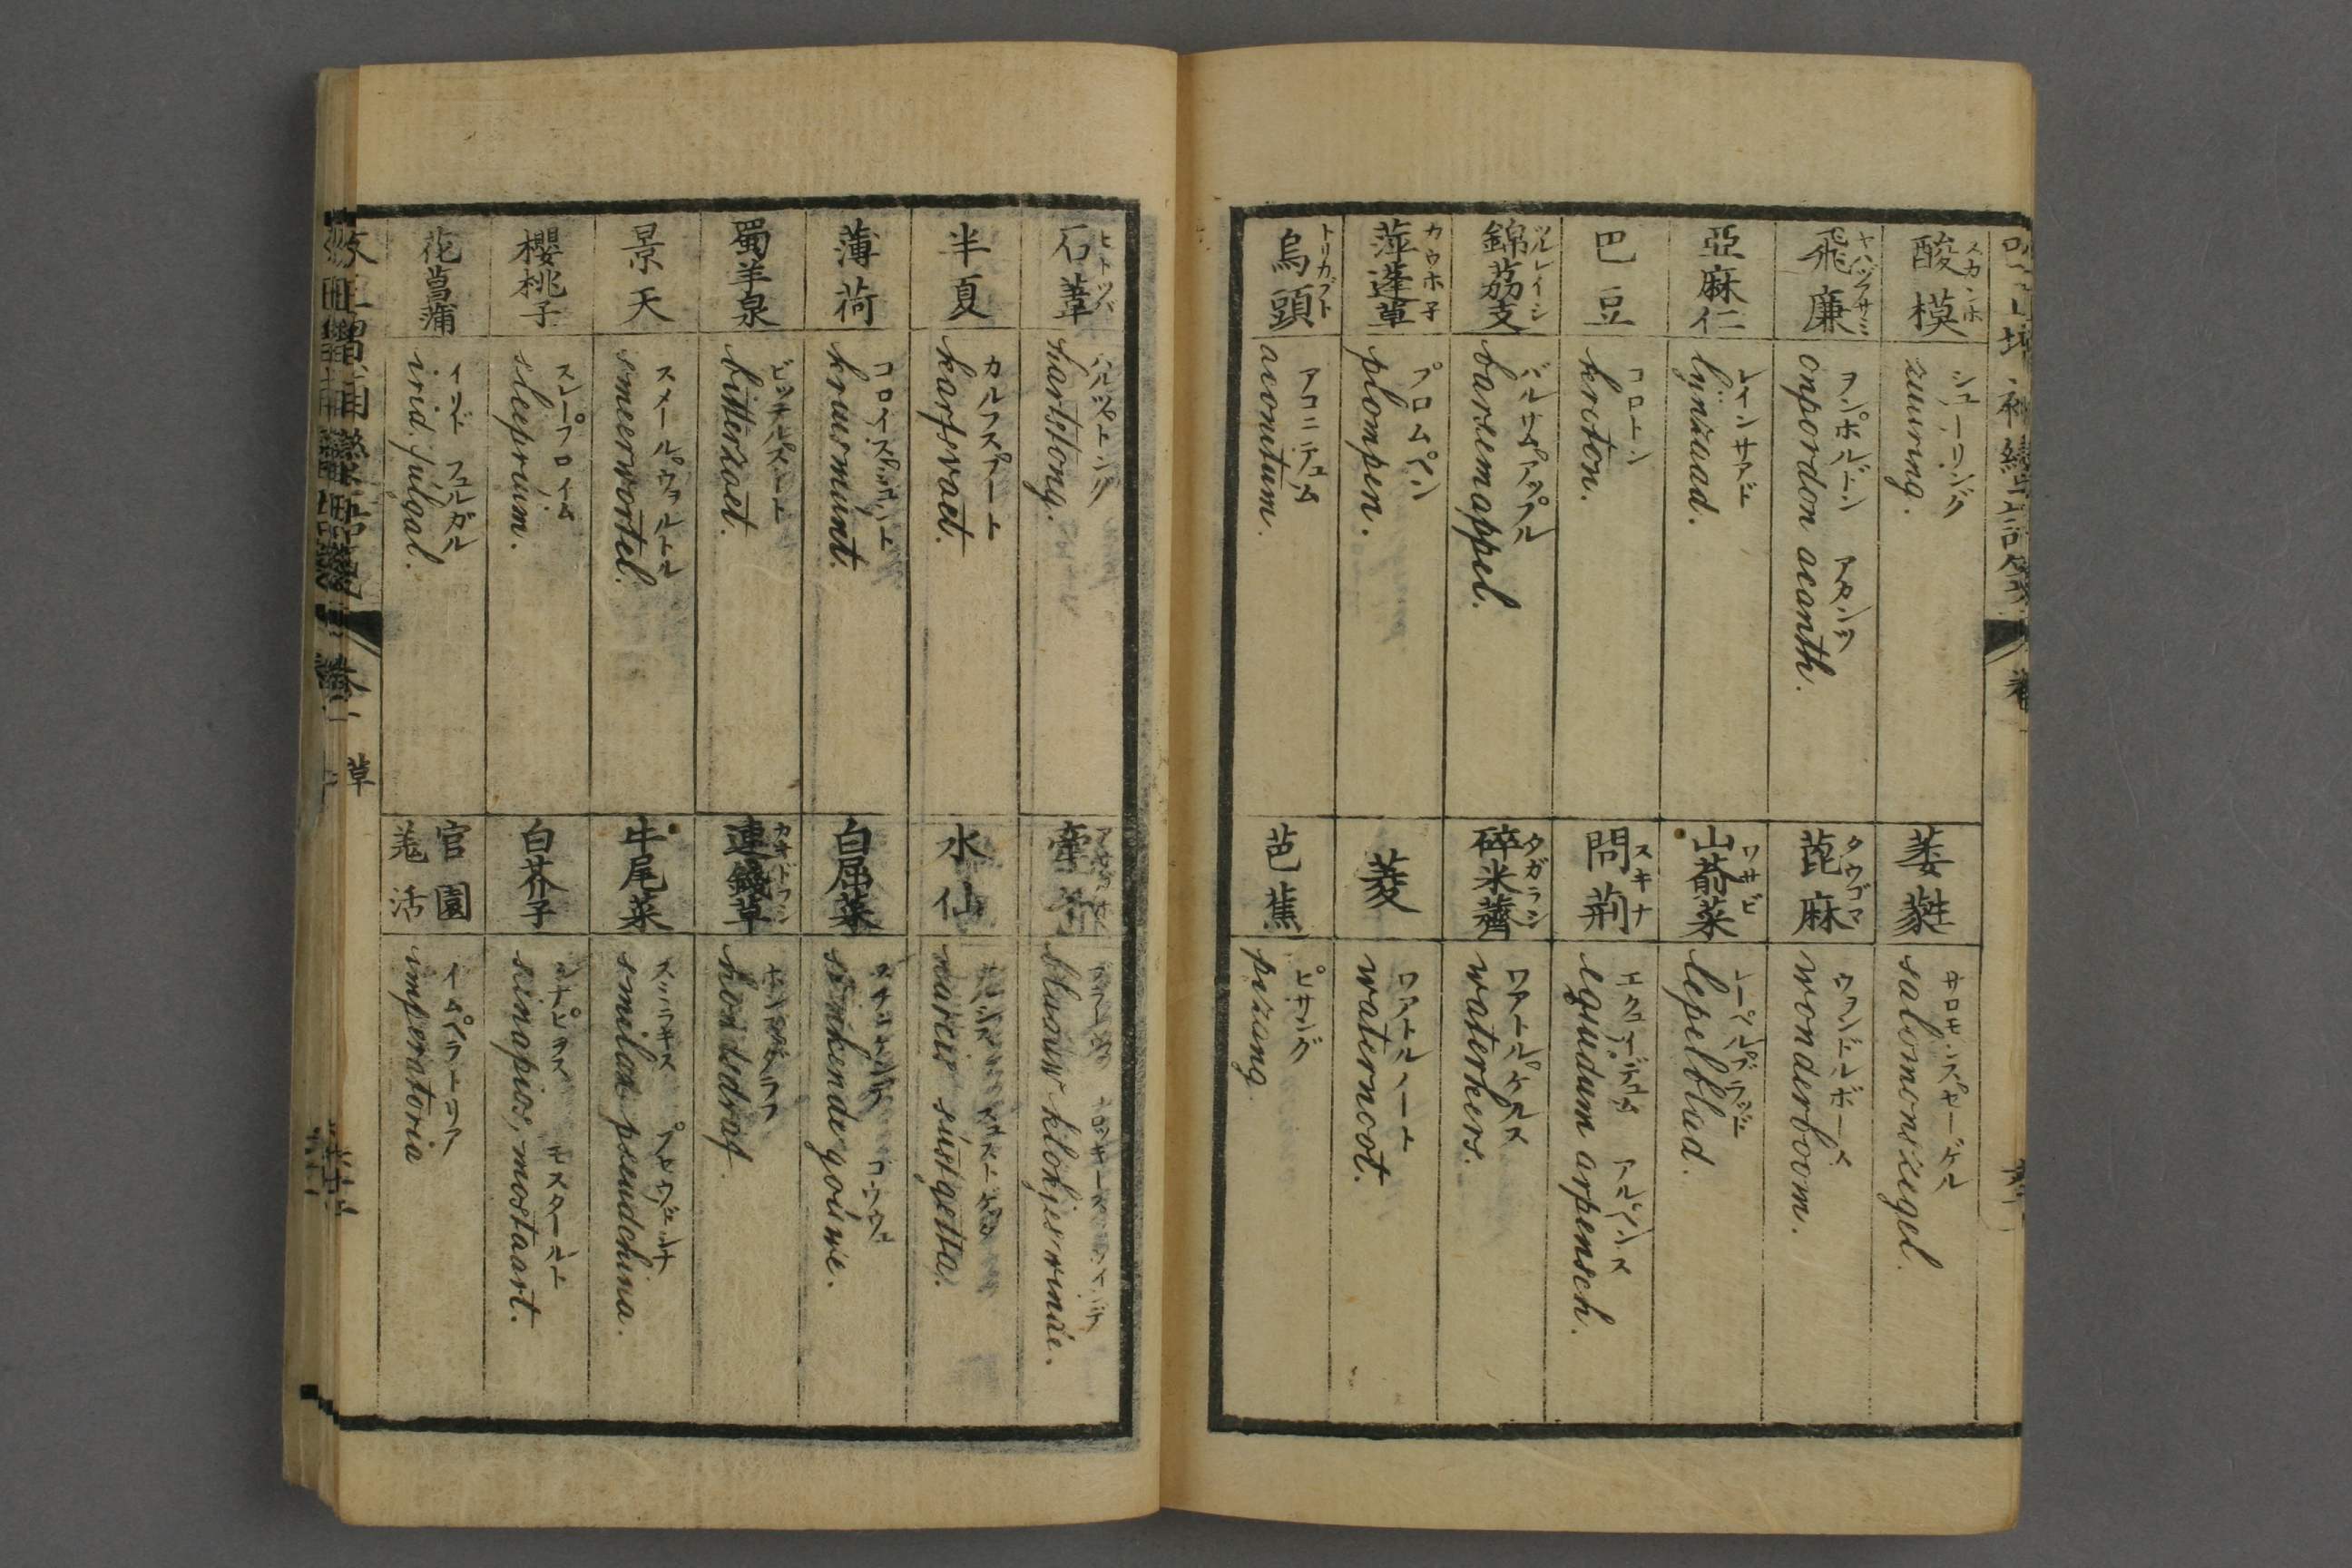 スカンホ
酸模
シューリング
zuuring.
ヤハヅアサミ
飛廉
ヲンポルドーン アカンツ
onpordon acanth.
亞麻仁
レインサアド
lynzaad.
巴豆
コロトン
kroton.
ツルレイシ
錦茘支
バルサムアップル
barsemappel.
カウホ子
萍蓬草
プロムペン
plompen.
トリカブト
烏頭
アコニテュム
aconitum.
萎蕤
サロモンスセーゲル
salomonszegel.
タウゴマ
蓖麻
ウヲンドルボーム
wonderboom.
ワサビ
山萮菜
レーペルブラット
lepelblad.
スギナ
問荊
エクュイジテュム アルペンス
equidum arpensch.
タガラシ
碎米薺
ワアトルケルス
waterkers.
菱
ワアトルノート
waternoot.
芭蕉
ピサング
pizang.
ヒトツバ
石葦
ハルツトング
hartstong.
半夏
カルフスフート
karfsvoet.
薄荷
コロイスミュント
krusmunt.
蜀羊泉
ビッテルズート
bitterzoet.
景天
スメールウヲルトル
smeerwortel.
櫻桃子
スレープロイム
sleepruim.
花菖蒲
イリド フュルガル
irid. fulgal.
牽
blaauw klokjes
水仙
narcis
白屈菜
stinkende gouwe.
カキドヲシ
連錢草
hondsdraf.
牛尾菜
スミラキス
smilax pseudchina.
白芥子
シナピヲス モスタールト
sinapios, mostaart.
官園
羗活
イムペラトリア
imperatoria
草